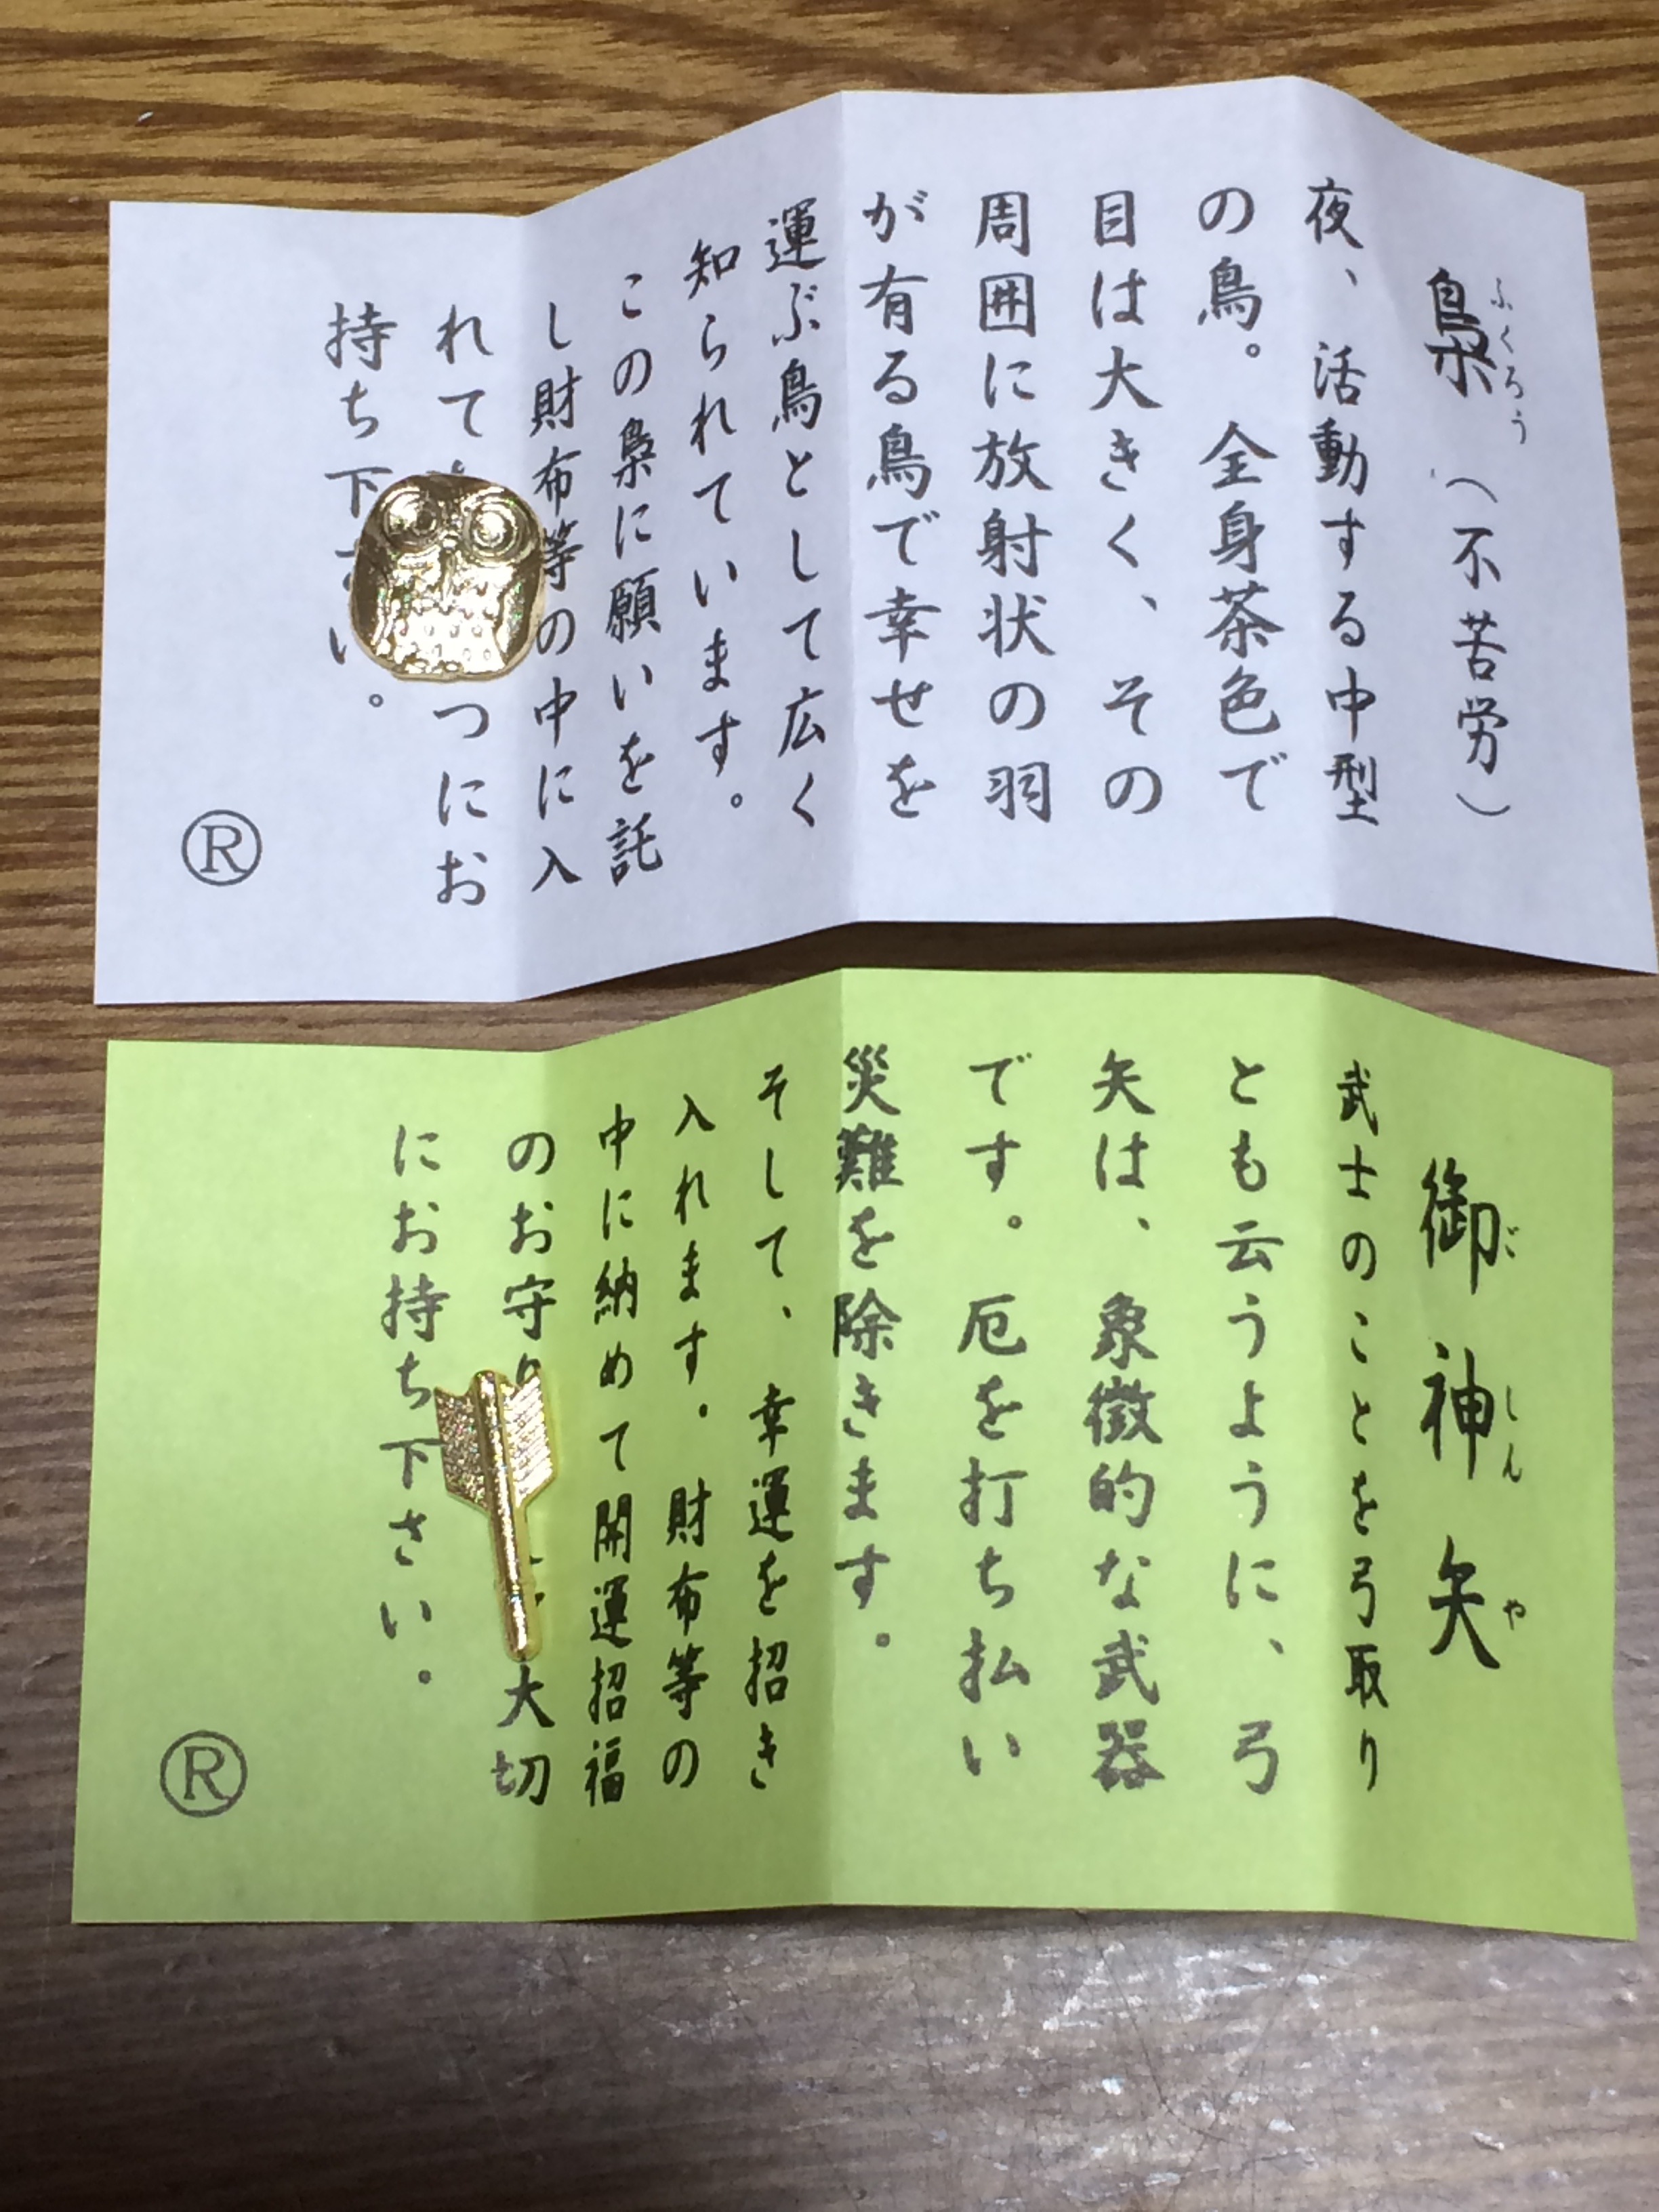 梟 （不苦労）
ふくろう
夜、活動する中型
の鳥。全身茶色で
目は大きく、その
周囲に放射状の羽
が有る鳥で幸せを
運ぶ鳥として広く
知られています。
この梟に願いを託
し財布等の中に入
れて つにお
持ち下 い。
Ⓡ
御神矢
ごしんや
武士のことを弓取り
とも云うように、弓
矢は、象徴的な武器
です。厄を打ち払い
災難を除きます。
そして、幸運を招き
入れます。財布等の
中に納めて開運招福
のお守り 大切
にお持ち下さい。
Ⓡ